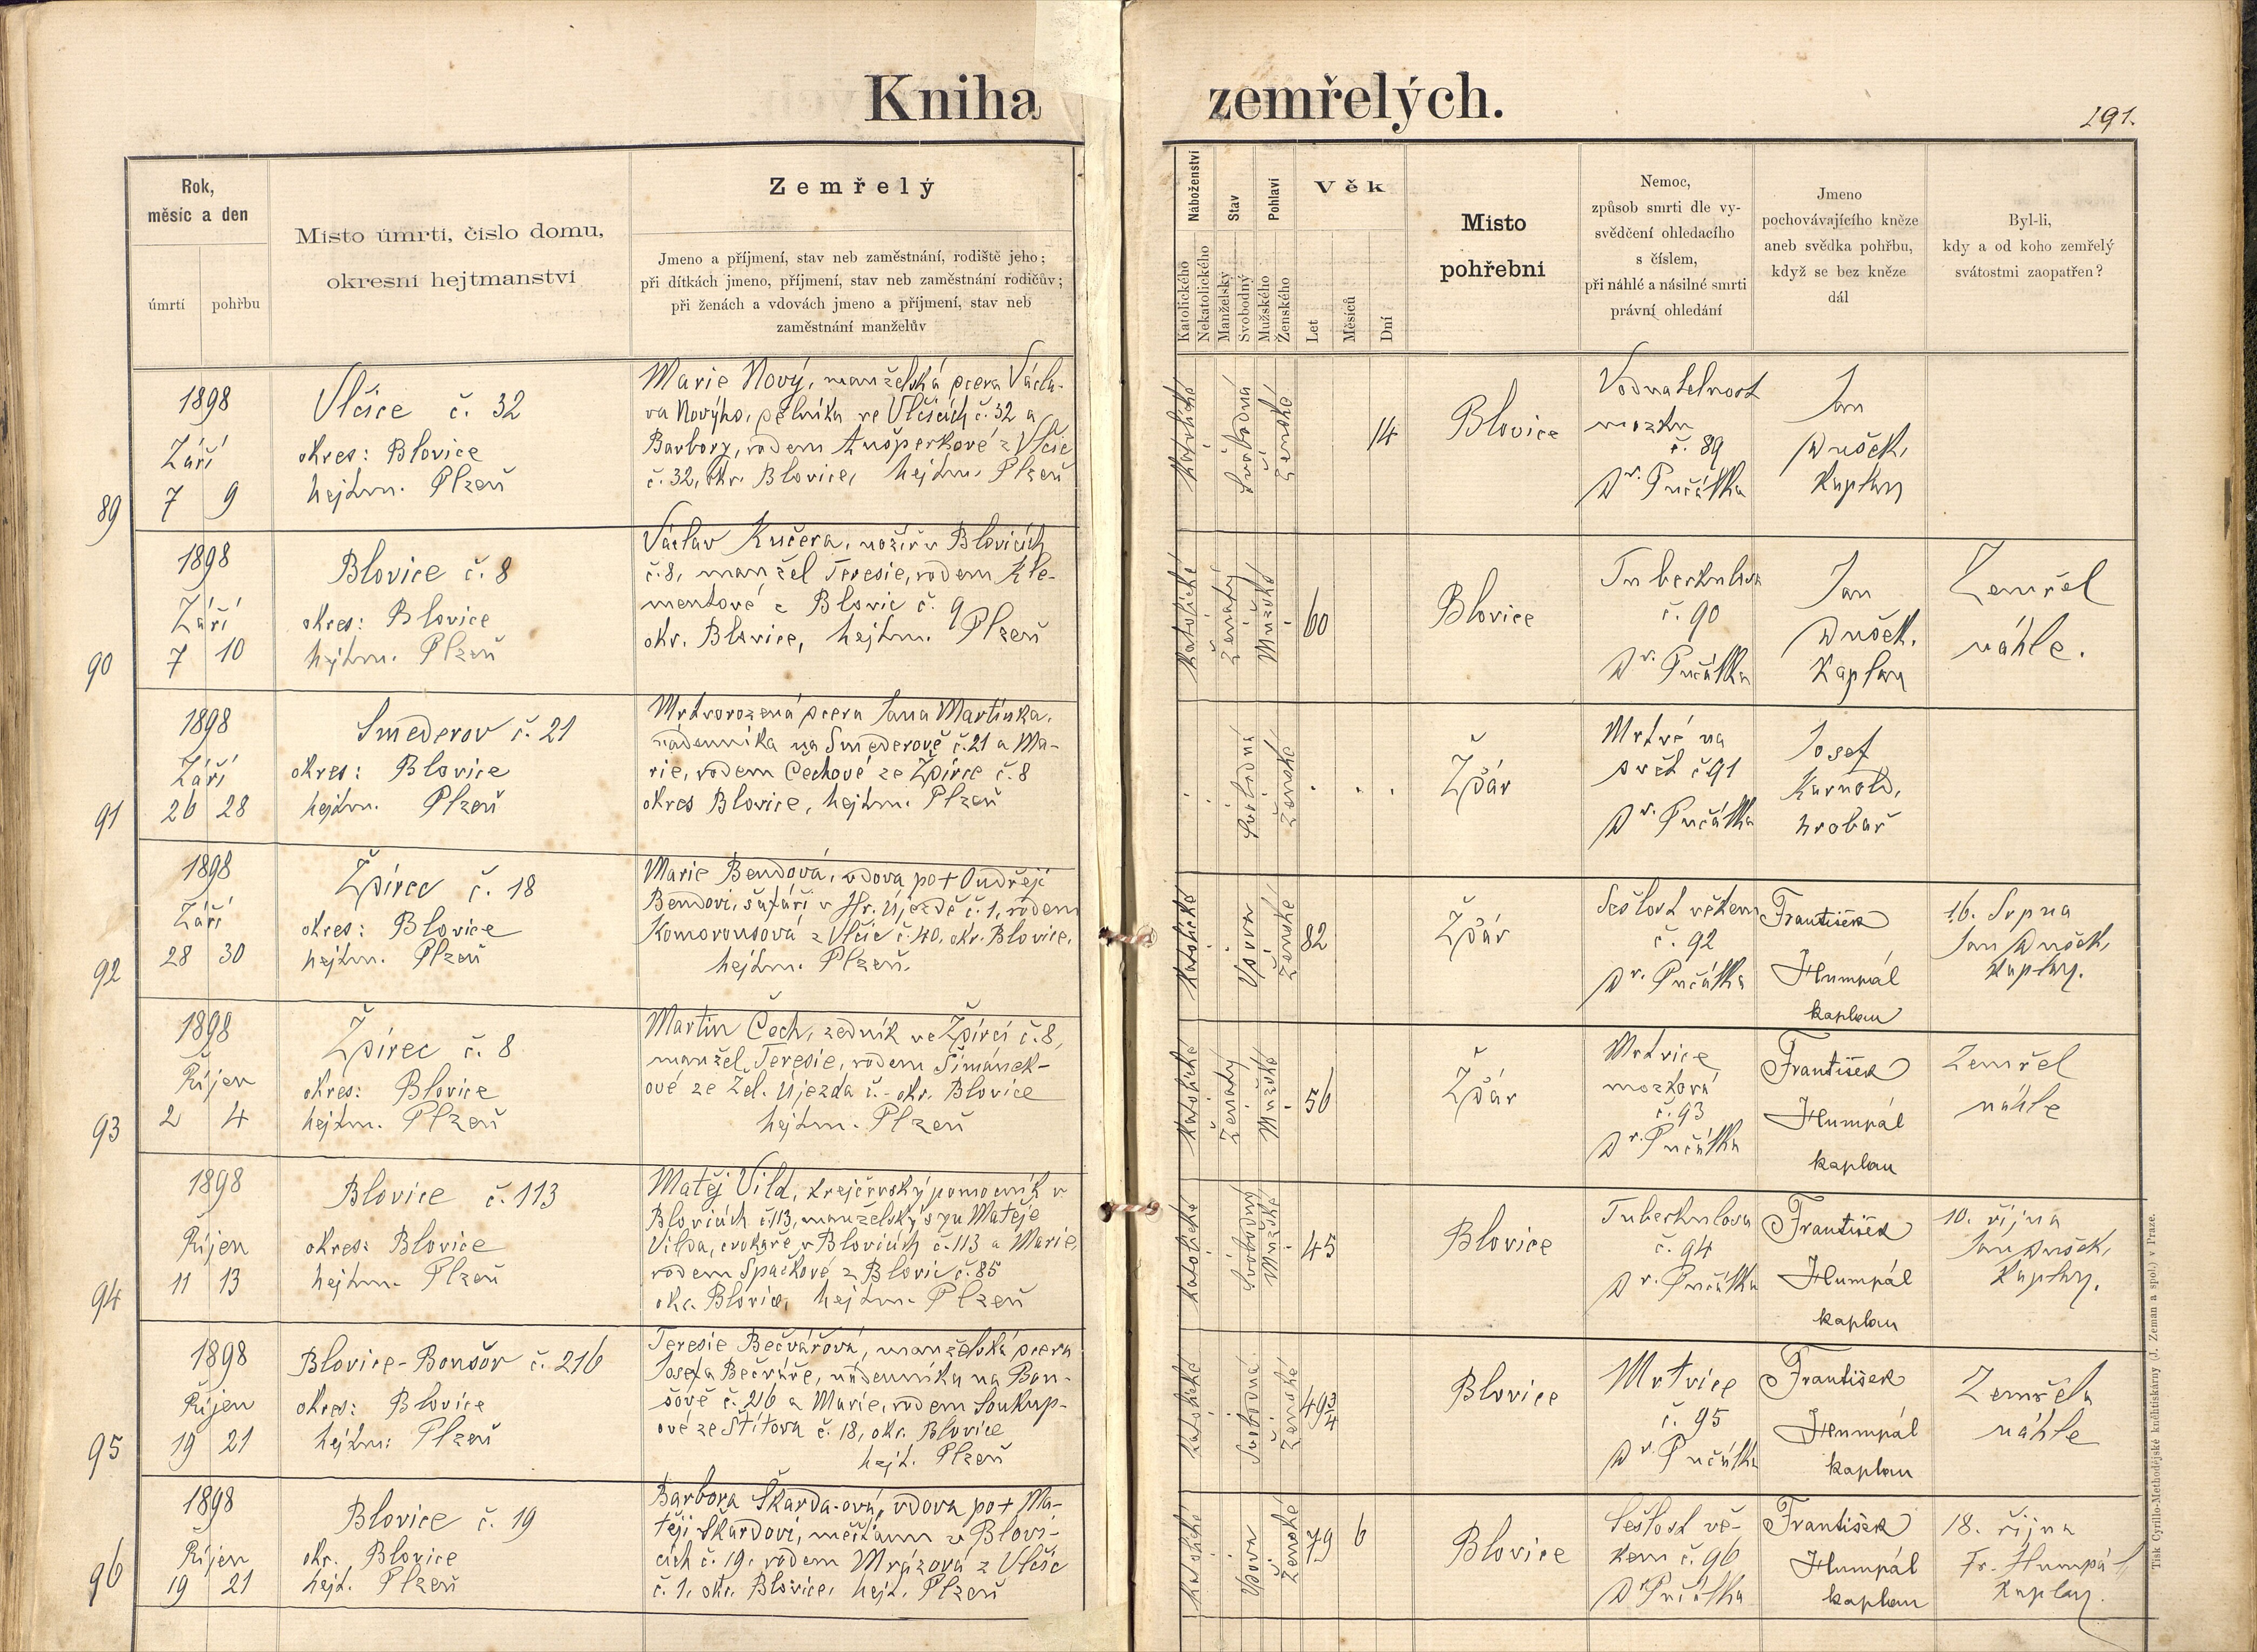 Kniha zemřelých.
191.
Rok,
měsíc a den
úmrtí
pohřbu
Místo úmrtí, číslo domu,
okresní hejtmanství
Zemřelý
Jmeno a příjmení, stav neb zaměstnání, rodiště jeho;
při dítkách jmeno, příjmení, stav neb zaměstnání rodičův;
při ženách a vdovách jmeno a příjmení, stav neb
zaměstnání manželův
Náboženství
Katolického
Nekatolického
Stav
Manželský
Svobodný
Pohlaví
Mužského
Ženského
Věk
Let
Měsíců
Dní
Místo
pohřební
Nemoc,
způsob smrti dle vy-
svědčení ohledacího
s číslem,
při náhlé a násilné smrti
právní ohledání
Jmeno
pochovávajícího kněze
aneb svědka pohřbu,
když se bez kněze
dál
Byl-li,
kdy a od koho zemřelý
svátostmi zaopatřen?
89
1898
Září
7 9
Vlčice č. 32
okres: Blovice
hejtm. Plzeň
Marie Nový, manželská dcera Václa-
va Nového, dělníka ve Vlčicích č. 32 a
Barbory, rodem Anšperkové z Vlčic
č. 32, okr. Blovice, hejtm. Plzeň
Katolické
Svobodná
Ženské
14
Blovice
Vodnatelnost
mozku
č. 89
Dr. Pučálka
Jan
Dušek,
Kaplan
90
1898
Září
7 10
Blovice č. 8
okres: Blovice
hejtm. Plzeň
Václav Kučera, nožíř v Blovicích
č. 8, manžel Teresie, rodem Kle-
mentové z Blovic č. 9
okr. Blovice, hejtm. Plzeň
Katolické
Ženatý
Mužské
60
Blovice
Tuberkulosa
č. 90
Dr. Pučálka
Jan
Dušek,
Kaplan
Zemřel
náhle.
91
1898
Září
26 28
Smederov č. 21
okres: Blovice
hejtm. Plzeň
Mrtvorozená dcera Jana Martínka,
nádenníka na Smederově č. 21 a Ma-
rie, rodem Čechové ze Ždírce č. 8
okres Blovice, hejtm. Plzeň
Svobodná
Ženské
Ždár
Mrtvé na
svět č 91
Dr. Pučálka
Josef
hrobař
92
1898
Září
28 30
Ždírec č. 18
okres: Blovice
hejtm. Plzeň
Marie Bendová, vdova po + Ondřeji
Bendovi, šafáři v Hr. Újezdě č. 1, rodem
Komorousová z Vlčic č. 40, okr. Blovice,
hejtm. Plzeň.
Katolické
Vdova
Ženské
82
Ždár
Sešlost věkem
č. 92
Dr. Pučálka
František
Humpál
kaplan
16. Srpna
Jan Dušek,
Kaplan.
93
1898
Říjen
2 4
Ždírec č. 8
okres: Blovice
hejtm. Plzeň
Martin Čech, zedník ve Ždírci č. 8,
manžel Teresie, rodem Šimánek-
ové ze Žel. Újezda č. - okr. Blovice
hejtm. Plzeň
Katolické
Ženatý
Mužské
56
Ždár
Mrtvice
mozková
č. 93
Dr. Pučálka
František
Humpál
kaplan
Zemřel
náhle
94
1898
Říjen
11 13
Blovice č. 113
okres: Blovice
hejtm. Plzeň
Matěj Vild, krejčovský pomocník v
Blovicích č. 113, manželský syn Matěje
Vilda, cvokaře v Blovicích č. 113 a Marie,
rodem Spačkové z Blovic č. 85
okr. Blovice, hejtm. Plzeň
Katolické
Svobodný
Mužské
45
Blovice
Tuberkulosa
č. 94
Dr. Pučálka
František
Humpál
kaplan
10. října
Jan Dušek,
Kaplan.
95
1898
Říjen
19 21
Blovice-Bonšov č. 216
okres: Blovice
hejtm: Plzeň
Teresie Bečvářová, manželská dcera
Josefa Bečváře, nádenníka na Bon-
šově č. 216 a Marie, rodem Soukup-
ové ze Štítova č. 18, okr. Blovice
hejt. Plzeň
Katolické
Svobodná
Ženské
49 3/4
Blovice
Mrtvice
č. 95
Dr. Pučálka
František
Humpál
kaplan
Zemřela
náhle
96
1898
Říjen
19 21
Blovice č. 19
okr. Blovice
hejt. Plzeň
Barbora Škarda-ová, vdova po + Ma-
těji Škardovi, měšťanu v Blovi-
cích č. 19, rodem Mrázová z Vlčic
č. 1, okr. Blovice, hejt. Plzeň
Katolické
Vdova
Ženské
79 6
Blovice
Sešlost vě-
kem č. 96
Dr Pučálka
František
Humpál
kaplan
18. října
Fr. Humpál
Kaplan.
Tisk Cyrillo-Methodějské knihtiskárny (J. Zeman a spol.) v Praze.